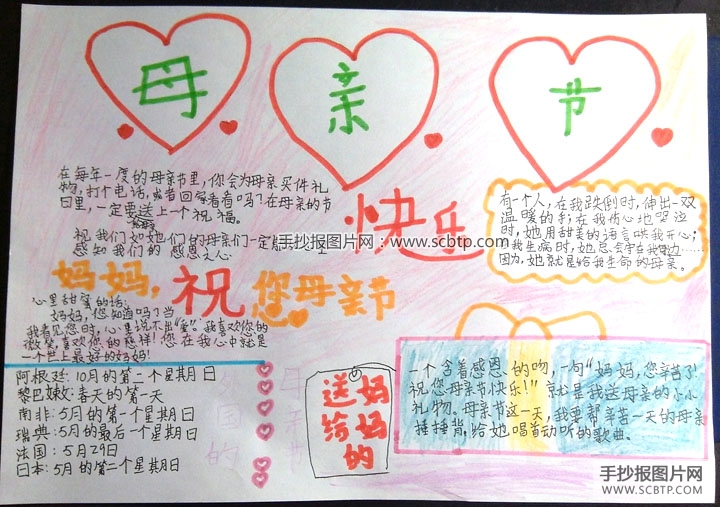 母 亲 节
在每年一度的母亲节里,你会为母亲买件礼
物,打个电话,或者回家看看吗?在母亲的节
日里,一定要送上一个祝福。
祝我们如她们的母亲们一定
感知我们的感恩之心
快乐
手抄报图片网:www.scbtp.com
有一个人,在我跌倒时,伸出一双
温暖的手;在我伤心地哭泣
时,她用甜美的语言哄我开心;
我生病时,她总会守在我身边……
因为,她就是给我生命的母亲。
妈妈,祝您母亲节
心里甜蜜的话:
妈妈,您知道吗?当
我看见您时,心里说不出"爱",我喜欢您的
微笑,喜欢您的慈祥!您在我心中就是
一个世上最好的妈妈!
阿根廷:10月的第二个星期日
黎巴嫩:春天的第一天
南非:5月的第一个星期日
瑞典:5月的最后一个星期日
法国:5月29日
日本:5月的第二个星期日
送给
妈妈的
一个含着感恩的吻,一句"妈妈,您辛苦了!
祝您母亲节快乐!"就是我送母亲的小小
礼物。母亲节这一天,我要帮辛苦一天的母亲
捶捶背,给她唱首动听的歌曲。
手抄报图片网
WWW.SCBTP.COM